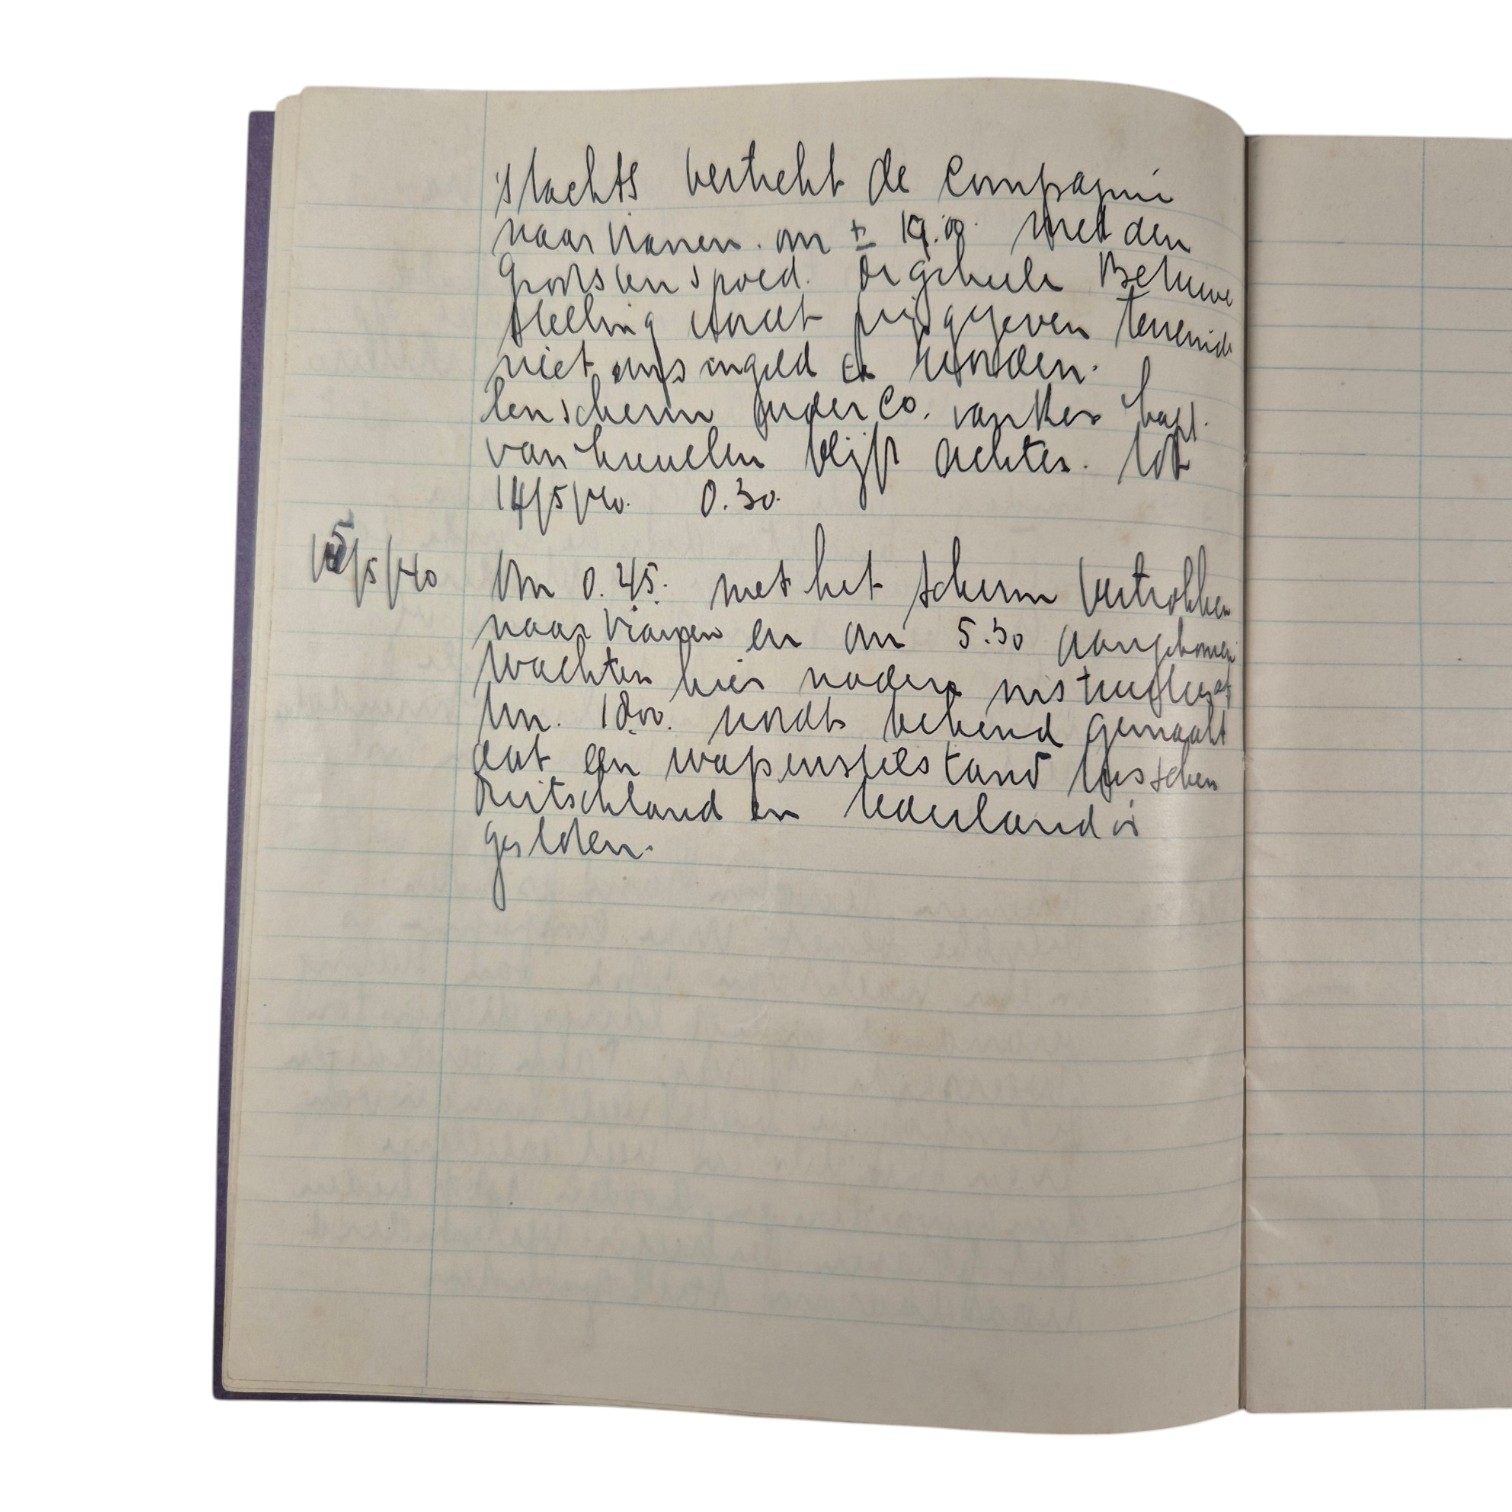 's Nachts vertrekt de Compagnie
naar Vianen. om ± 19.00. Met den
grootsten spoed. De geheele Betuwe
stelling wordt prijsgegeven teneinde
niet omsingeld te worden.
Een scherm onder Co. van Res Kapt.
van Heuvelen blijft achter. Tot
14/5/40. 0.30.
15/5/40 Om 0.45. met het scherm vertrokken
naar Vianen en om 5.30 aangekomen
Wachten hier nadere instructies af
Om. 1800. wordt bekend gemaakt
dat een wapenstilstand tusschen
Duitschland en Nederland is
gesloten.